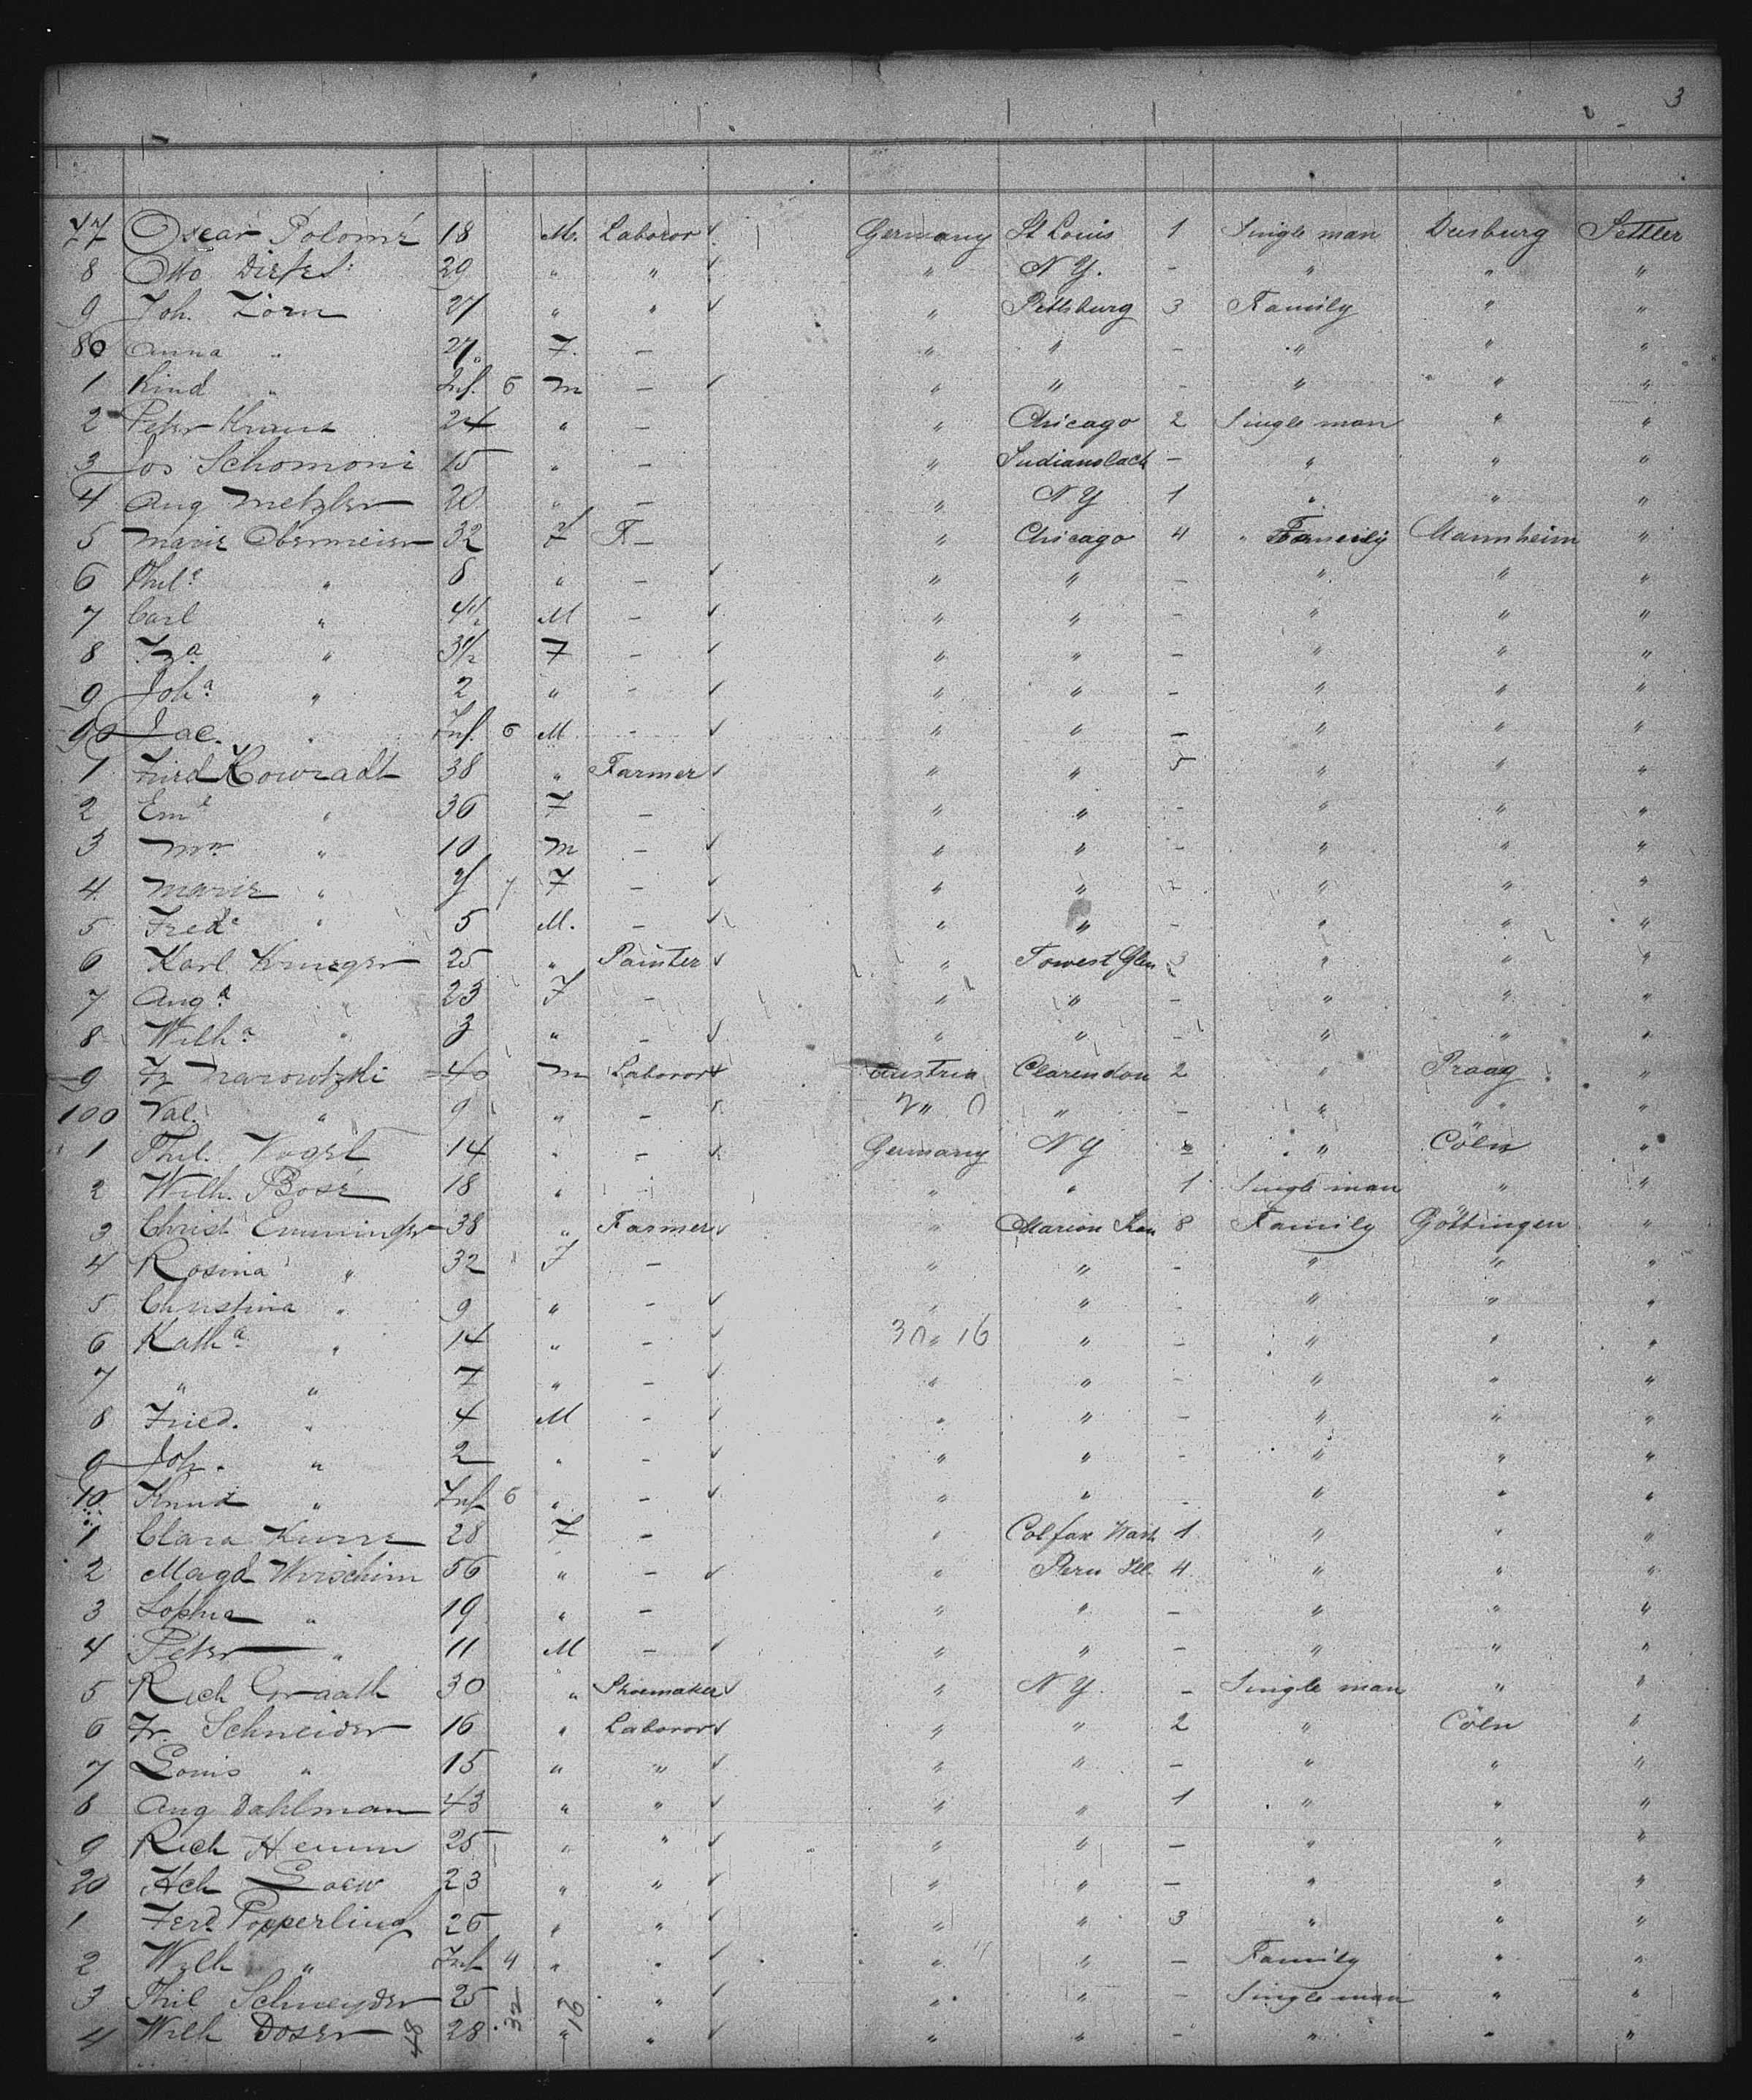 3
77 Oscar Polomé 18 M. Laboror ✓ Germany St Louis 1 Single man Duisburg Settler
8 Otto 29 " " ✓ " N Y. - " " "
9 Joh. Zörn 27 " " ✓ " Pittsburg 3 Family " "
80 Anna " 27 F. - " " - " " "
1 Kind " Inf. 6 m - ✓ " " - " " "
2 Peter Kraus 24 " - " Chicago 2 Single man " "
3 Jos Schomoni 15 " - " - " " "
4 Aug Metzler 20 " - " N Y 1 " " "
5 Marie Obermeier 32 F - " Chicago 4 " Family Mannheim "
6 Phil.e " 8 " - ✓ " " - " " "
7 Carl " 4 1/2 M - ✓ " " - " " "
8 " 3 1/2 F - ✓ " " - " " "
9 Joh.a " 2 " - ✓ " " - " " "
90 Jac. " Inf. 6 M - ✓ " " - " " "
1 Kowradt 38 " Farmer ✓ " " 5 " " "
2 Em.e " 36 F - " " - " " "
3 " 10 m - ✓ " " - " " "
4 Marie " 7 F - ✓ " " - " " "
5 Fred.e " 5 M. - ✓ " " - " " "
6 Karl Krueger 25 " Painter ✓ " Forrest Glen 3 " " "
7 Aug.a " 23 F - " " - " " "
8 Wilh.a " 3 " - ✓ " " - " " "
9 Fz 40 m Laboror ✓ Austria Clarendon 2 " Praag "
100 Val. " 9 " - ✓ " " - " " "
1 Phil. Vogel 14 " - ✓ Germany N Y - " Cöln "
2 Wilh. Bosé 18 " - " " 1 Single man " "
3 Christ Emminger 38 " Farmer ✓ " Marion Kan 8 Family Göttingen "
4 Rosina " 32 F - " " - " " "
5 Christina " 9 " - ✓ " " - " " "
6 Kath.a " 14 " - ✓ 30 " 16 " - " " "
7 " " 7 " - ✓ " " - " " "
8 Fried. " 4 M - ✓ " " - " " "
9 Joh. " 2 " - ✓ " " - " " "
10 " Inf 6 " - ✓ " " - " " "
1 Clara 28 F - " Colfax Wash 1 " " "
2 Magd 56 " - ✓ " Peru Ill. 4 " " "
3 Sophia " 19 " - " " - " " "
4 Peter " 11 M - ✓ " " - " " "
5 Rich Graath 30 " Shoemaker ✓ " N Y. - Single man " "
6 Fr. Schneider 16 " Laboror ✓ " " 2 " Cöln "
7 Louis " 15 " " ✓ " " - " " "
8 Aug Dahlman 43 " " ✓ " " 1 " " "
9 Rich 25 " " ✓ " " - " " "
20 Hch Loew 23 " " ✓ " " - " " "
1 Ferd Popperling 26 " " ✓ " " 3 " " "
2 Wilh " Inf 4 " " ✓ " " - Family " "
3 Phil Schneyder 25 " " ✓ " " - Single man " "
4 Wilh Doser 28 " " ✓ " " - " " "
48 32 16